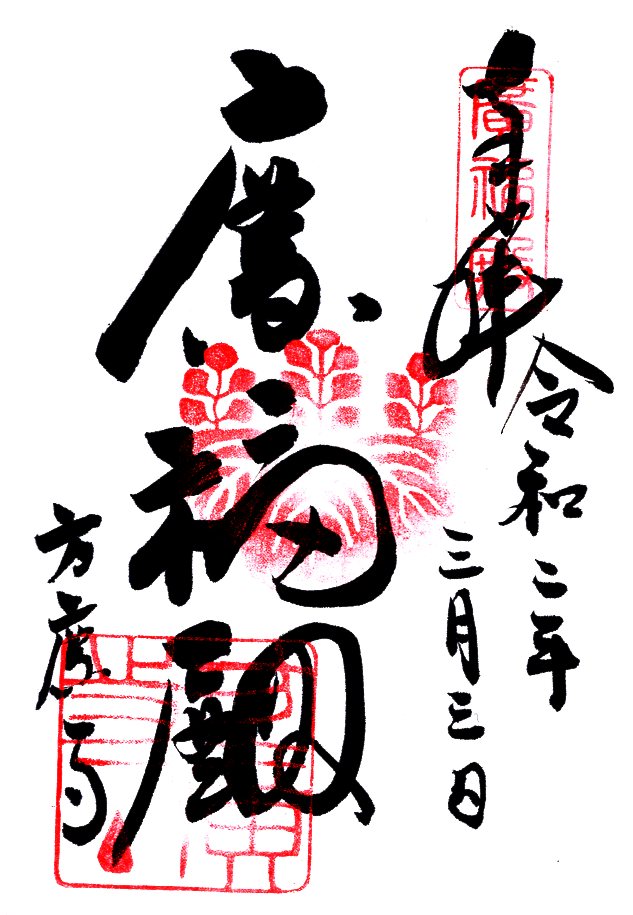 奉拝
廣福殿
令和二年
三月三日
廣福殿
方廣寺